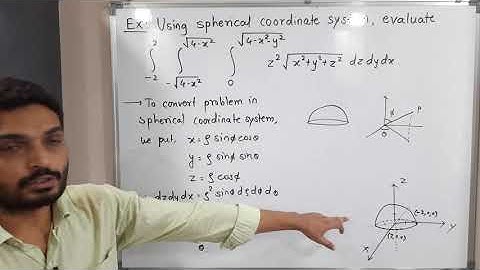 Ex: Using spherical coordinate system, evaluate
∫_{-2}^{2} ∫_{-√4-x²}^{√4-x²} ∫_{0}^{√4-x²-y²} z² √x²+y²+z² dzdydx
→ To convert problem in
spherical coordinate system,
we put, x = ρ sinφ cosθ
y = ρ sinφ sinθ
z = ρ cosφ
dzdydx = ρ² sinφ dρ dφ dθ
P
Z
(-2,0,0)
Y
(2,0,0)
X